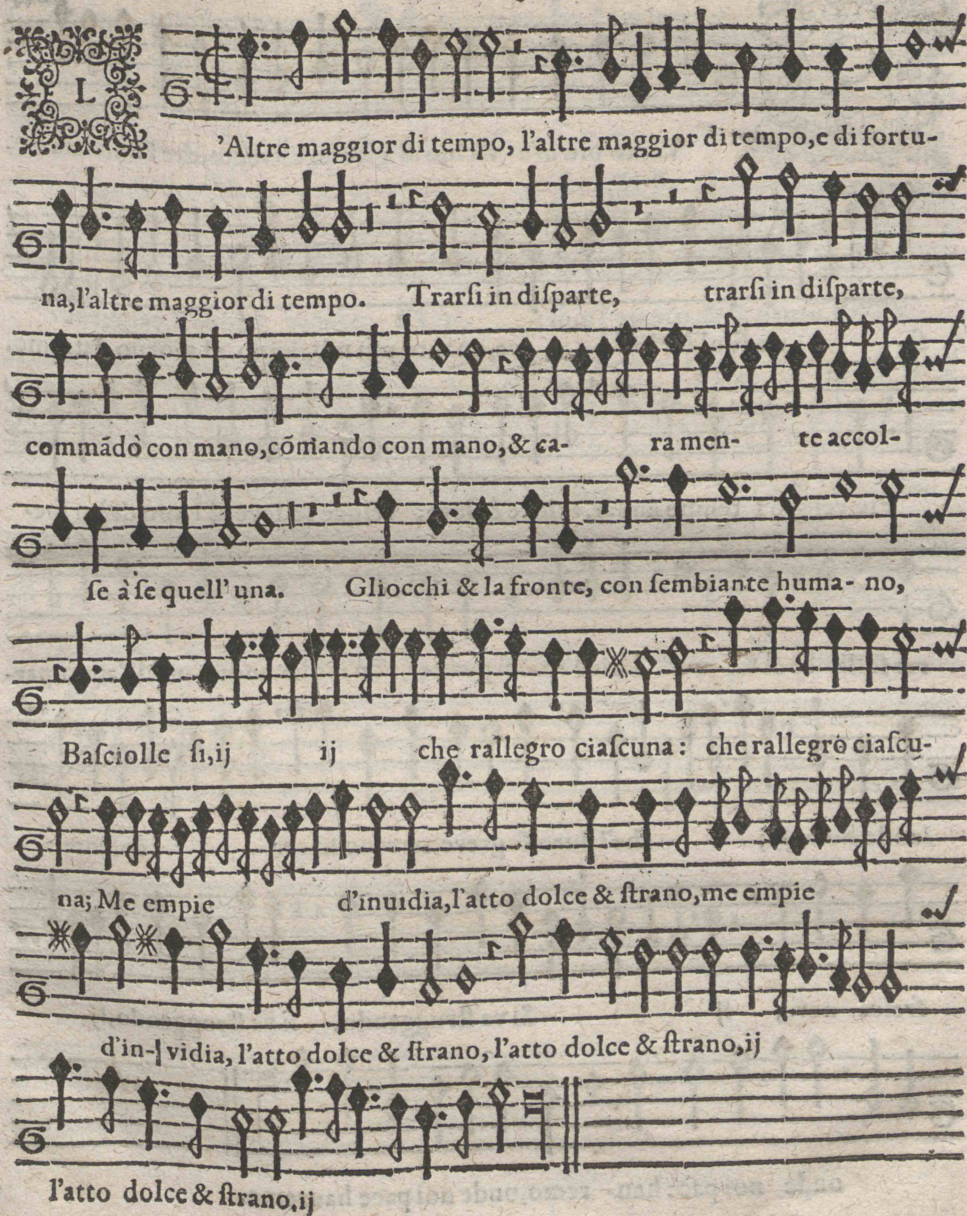 L
'Altre maggior di tempo, l'altre maggior di tempo, e di fortu-
na, l'altre maggior di tempo. Trarſi in diſparte, trarſi in diſparte,
commãdò con mano, cõmando con mano, & ca- ra men- te accol-
ſe à ſe quell' una. Gliocchi & la fronte, con ſembiante huma- no,
Baſciolle ſi, ij ij che rallegro ciaſcuna: che rallegrò ciaſcu-
na; Me empie d'inuidia, l'atto dolce & ſtrano, me empie
d'in- vidia, l'atto dolce & ſtrano, l'atto dolce & ſtrano, ij
l'atto dolce & ſtrano, ij